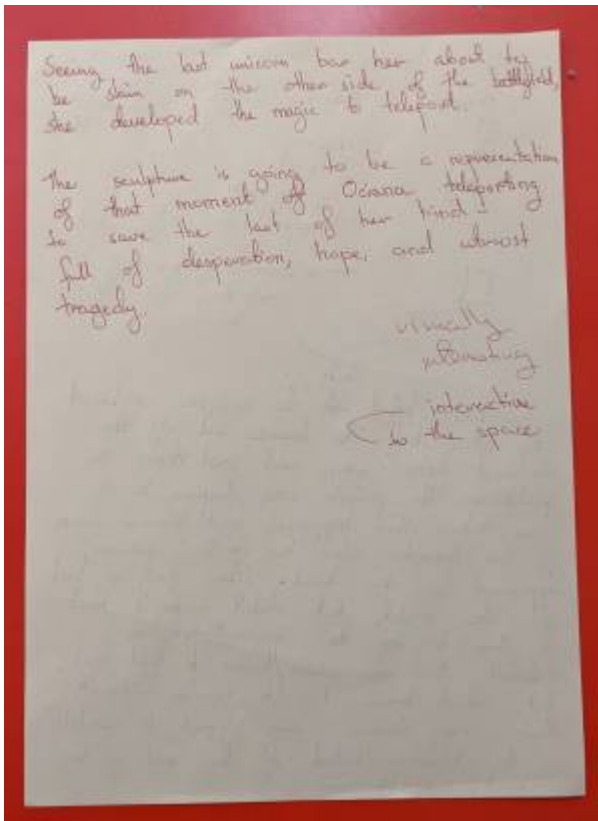 Seeing the last unicorn bar her about to
be slain on the other side of the battlefield,
she developed the magic to teleport.
The sculpture is going to be a representation
of that moment of Ociana teleporting
to save the last of her kind -
full of desperation, hope, and utmost
tragedy.
visually
interesting
interactive
to the space